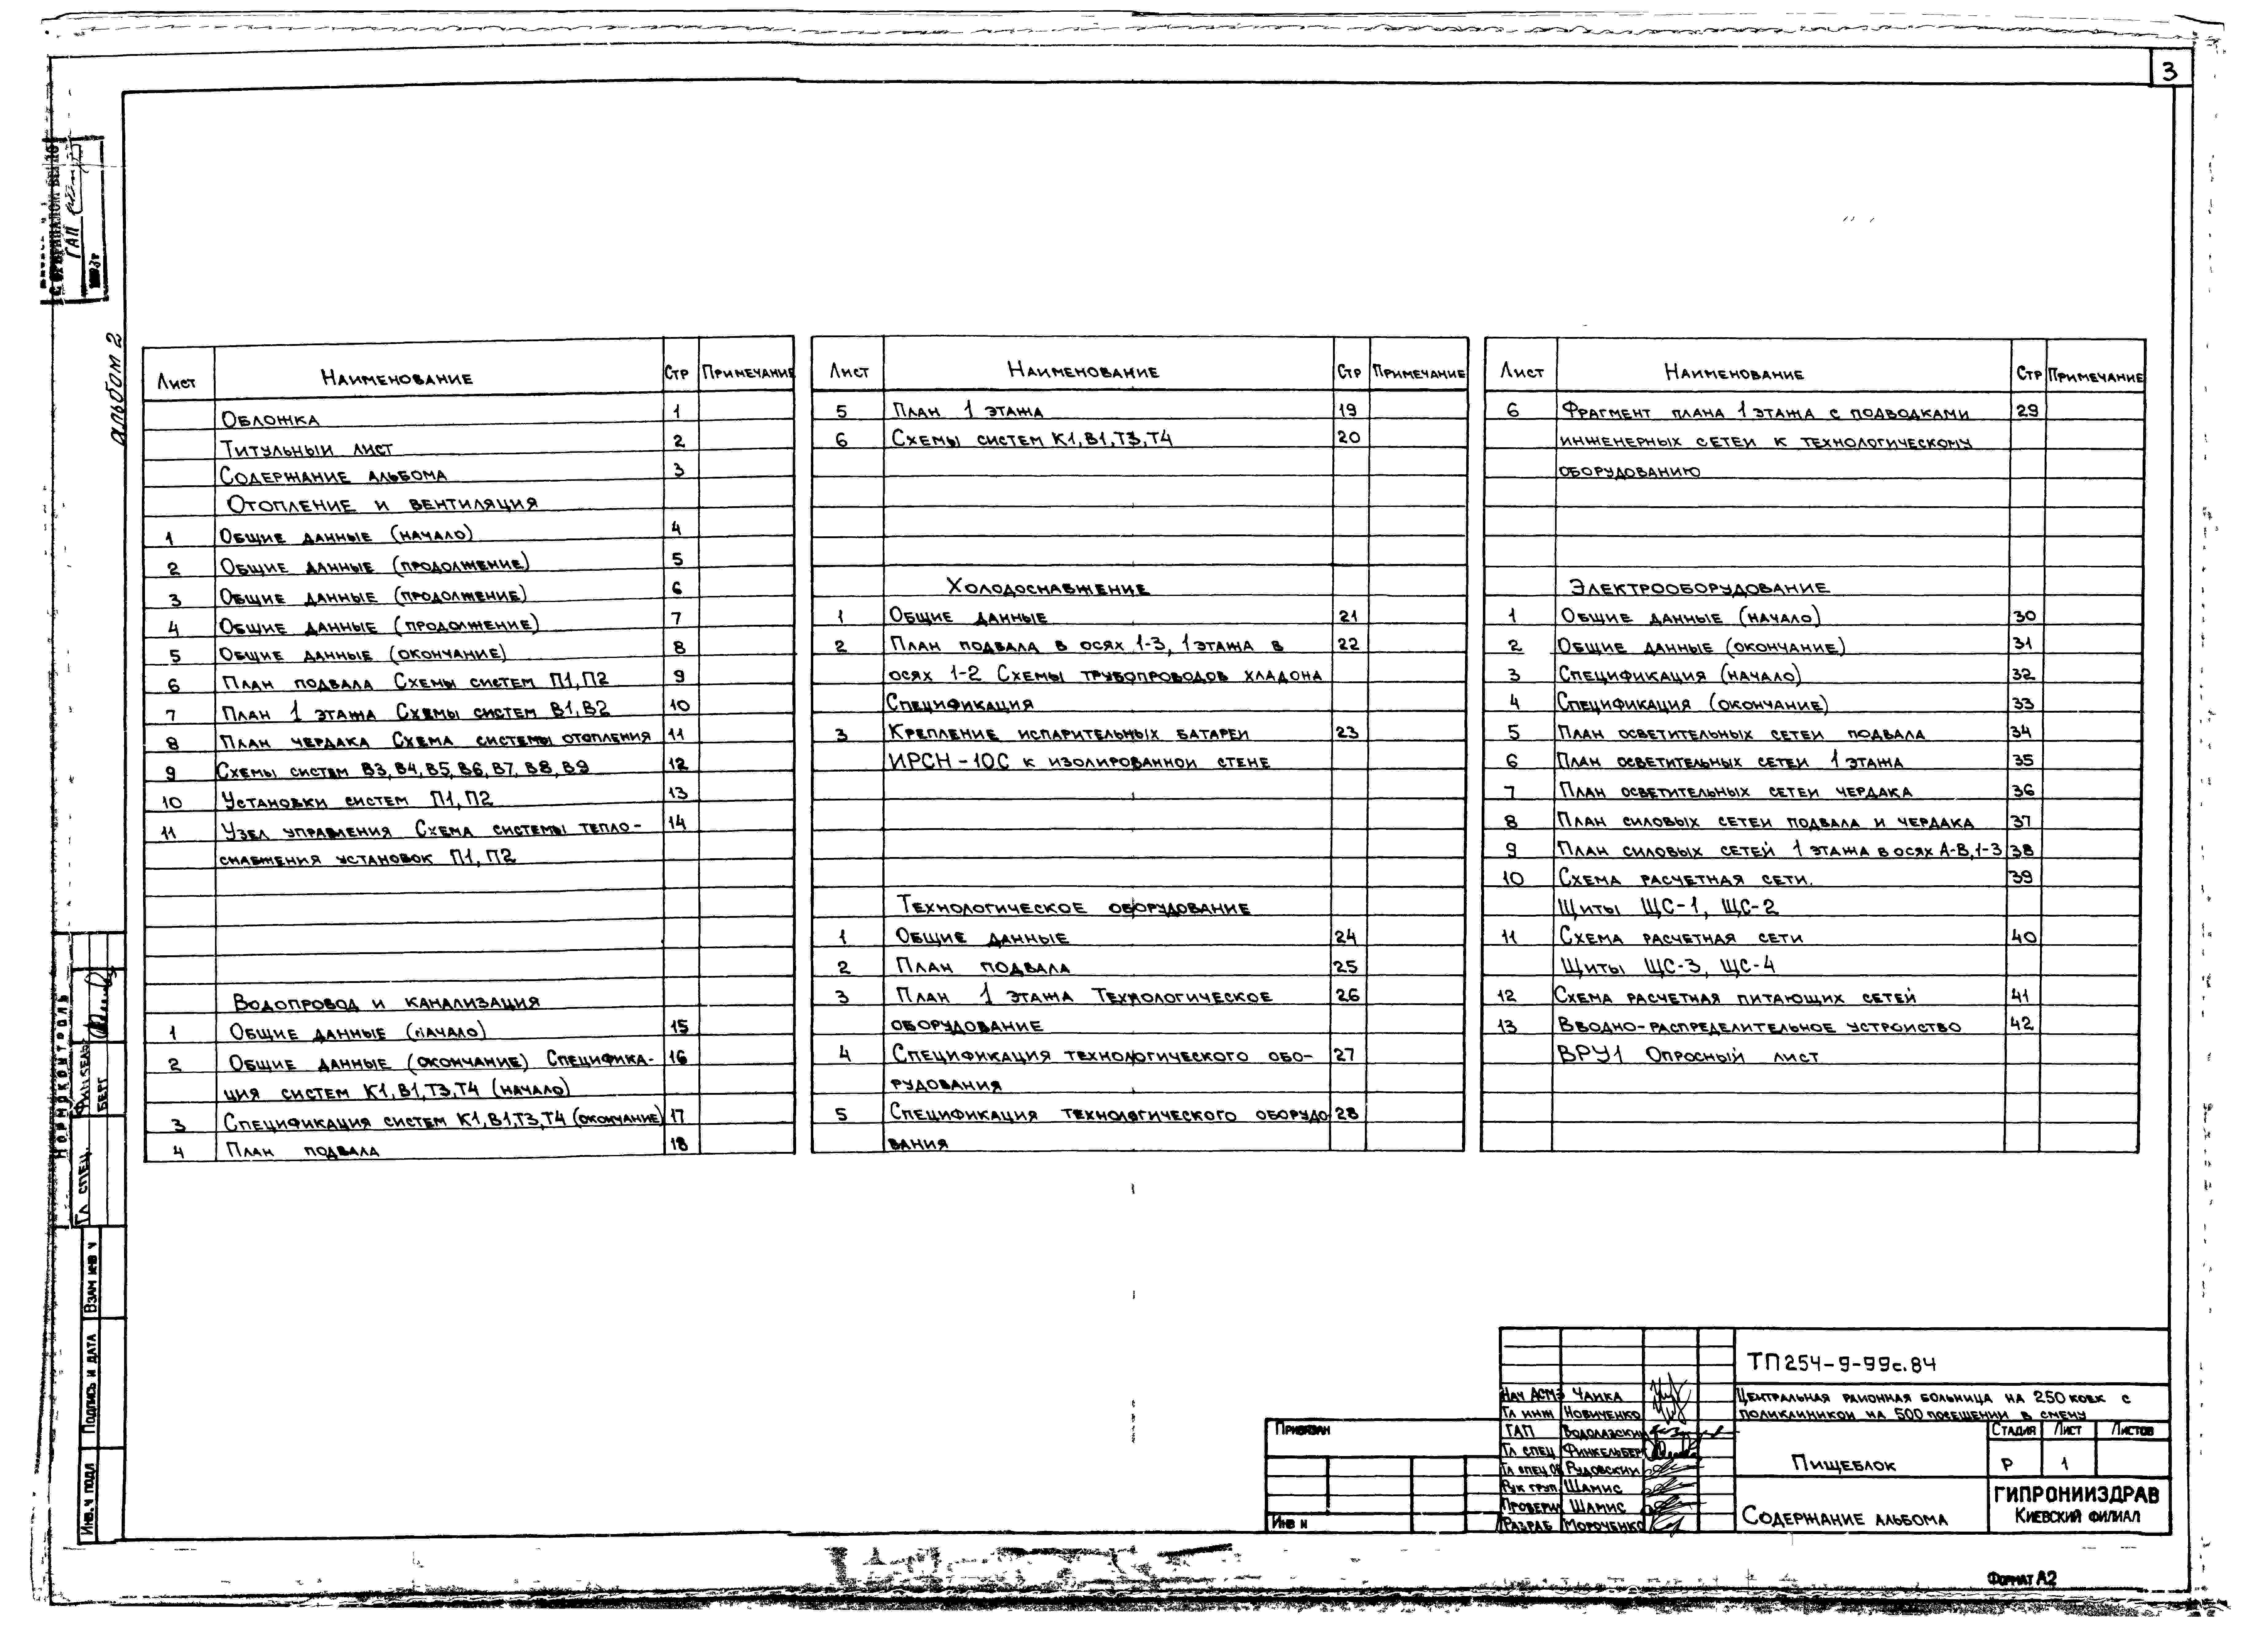 3
альбом 2
Лист Наименование Стр Примечание
Обложка 1
Титульный лист 2
Содержание альбома 3
Отопление и вентиляция
1 Общие данные (начало) 4
2 Общие данные (продолжение) 5
3 Общие данные (продолжение) 6
4 Общие данные (продолжение) 7
5 Общие данные (окончание) 8
6 План подвала Схемы систем П1, П2 9
7 План 1 этажа Схемы систем В1, В2 10
8 План чердака Схема системы отопления 11
9 Схемы систем В3, В4, В5, В6, В7, В8, В9 12
10 Установки систем П1, П2 13
11 Узел управления Схема системы тепло- 14
снабжения установок П1, П2
Водопровод и канализация
1 Общие данные (начало) 15
2 Общие данные (окончание) Специфика- 16
ция систем К1, В1, Т3, Т4 (начало)
3 Спецификация систем К1, В1, Т3, Т4 (окончание) 17
4 План подвала 18
Лист Наименование Стр Примечание
5 План 1 этажа 19
6 Схемы систем К1, В1, Т3, Т4 20
Холодоснабжение
1 Общие данные 21
2 План подвала в осях 1-3, 1 этажа в 22
осях 1-2 Схемы трубопроводов хладона
Спецификация
3 Крепление испарительных батареи 23
ИРСН-10С к изолированной стене
Технологическое оборудование
1 Общие данные 24
2 План подвала 25
3 План 1 этажа Технологическое 26
оборудование
4 Спецификация технологического обо- 27
рудования
5 Спецификация технологического оборудо 28
вания
Лист Наименование Стр Примечание
6 Фрагмент плана 1 этажа с подводками 29
инженерных сетей к технологическому
оборудованию
Электрооборудование
1 Общие данные (начало) 30
2 Общие данные (окончание) 31
3 Спецификация (начало) 32
4 Спецификация (окончание) 33
5 План осветительных сетей подвала 34
6 План осветительных сетей 1 этажа 35
7 План осветительных сетей чердака 36
8 План силовых сетей подвала и чердака 37
9 План силовых сетей 1 этажа в осях А-В, 1-3 38
10 Схема расчетная сети. 39
Щиты ЩС-1, ЩС-2
11 Схема расчетная сети 40
Щиты ЩС-3, ЩС-4
12 Схема расчетная питающих сетей 41
13 Вводно-распределительное устройство 42
ВРУ1 Опросный лист
ГАП
Нормоконтроль
Гл спец.
Берг
Взам инв ч
Подпись и дата
Инв.ч подл
Привязан
Инв н
Нач АСМЭ Чайка
Гл инж Новиченко
ГАП Водолазский
Гл спец Финкельберг
Гл спец ОВ Рудовский
Рук груп. Шамис
Проверил Шамис
Разраб Мороченко
ТП 254-9-99с.84
Центральная районная больница на 250 коек с
поликлиникой на 500 посещений в смену
Пищеблок
Стадия Лист Листов
Р 1
Содержание альбома
ГИПРОНИИЗДРАВ
Киевский филиал
Формат А2